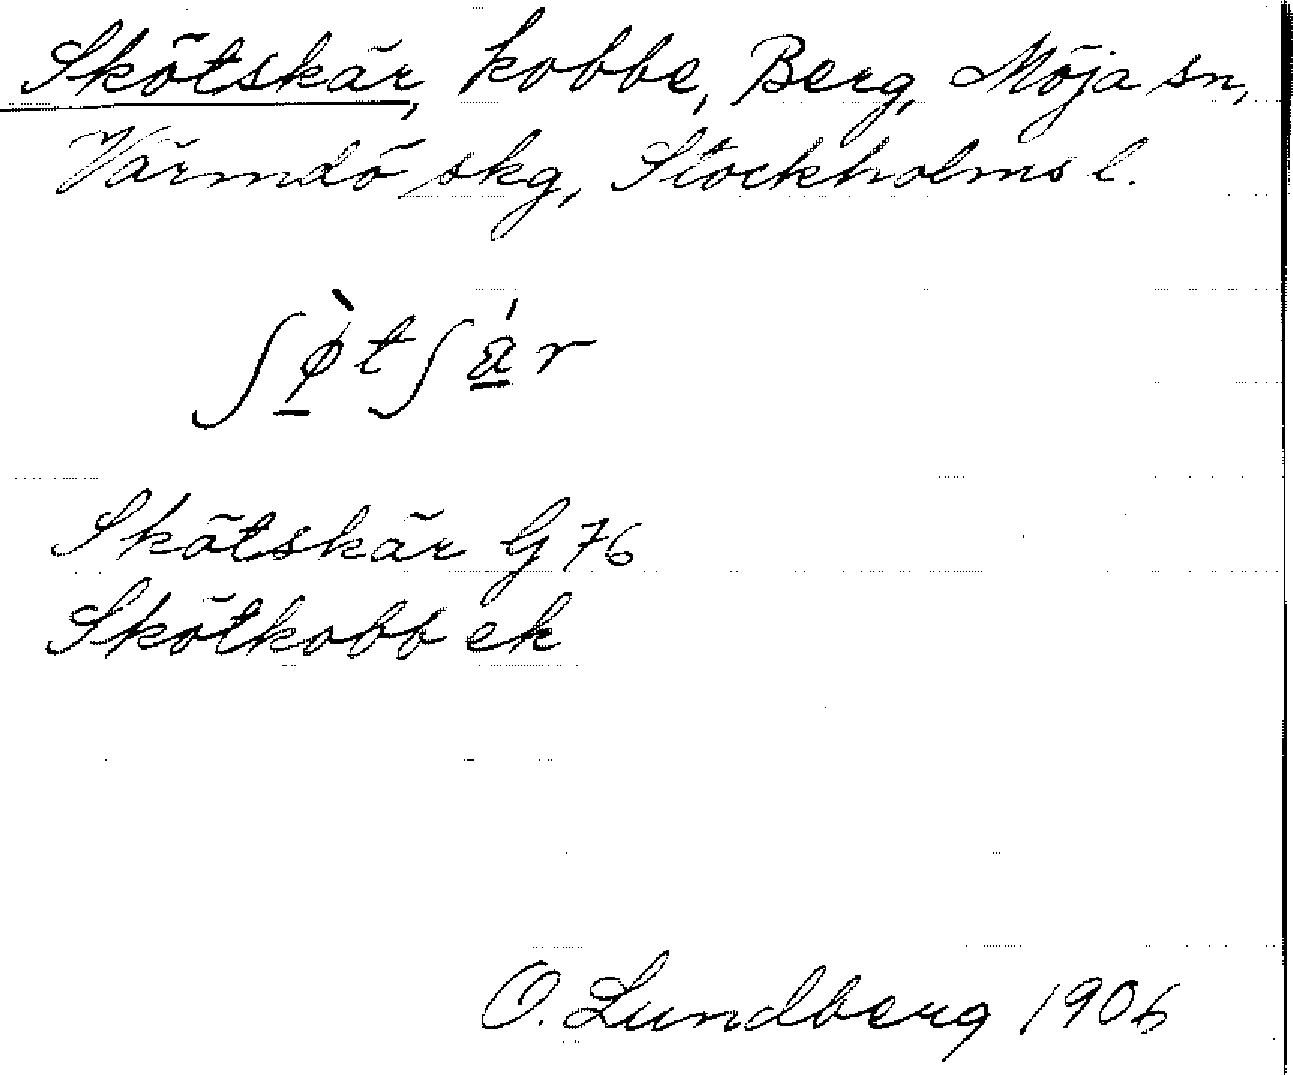 Skötskär, kobbe, Berg, Möja sn,
Värmdö skg, Stockholms l.
ʃø̠̀tʃä̠́r
Skötskär G 76
Skötkobb ek
O. Lundberg 1906